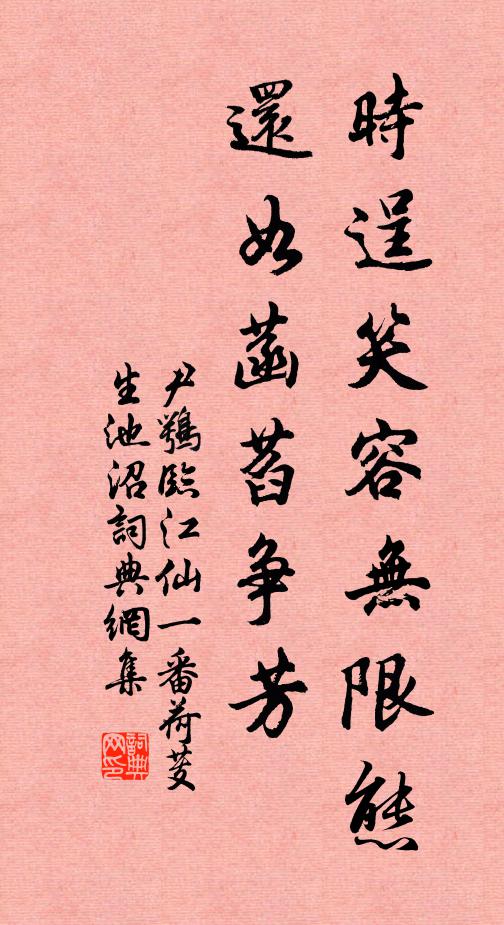 時逞笑容無限態
還如菡萏争芳
尹鶚臨江仙一番荷芰
生池沼詞典網集
詞典网印